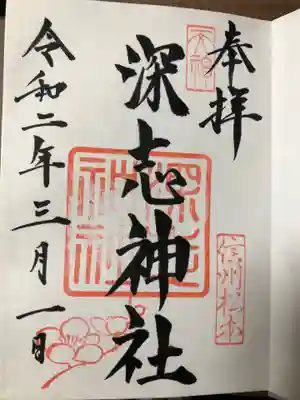 奉拝
天神
信州松本
深志神社
深志神社
令和二年三月一日